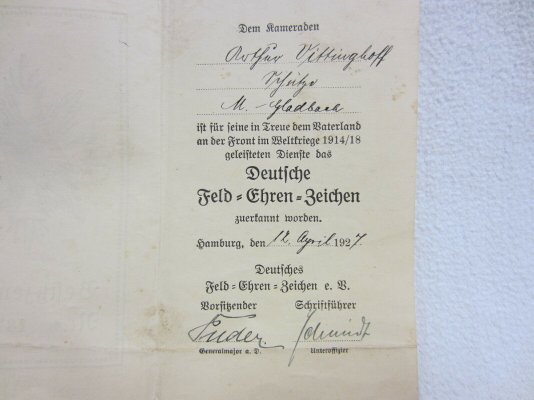 Dem Kameraden
Arthur Vittinghoff
Schütze
M.-Gladbach
ist für seine in Treue dem Vaterland
an der Front im Weltkriege 1914/18
geleisteten Dienste das
Deutsche
Feld=Ehren=Zeichen
zuerkannt worden.
Hamburg, den 12. April 1927
Deutsches
Feld=Ehren=Zeichen e. V.
Vorsitzender Schriftführer
Schmidt
Generalmajor a. D. Unteroffizier